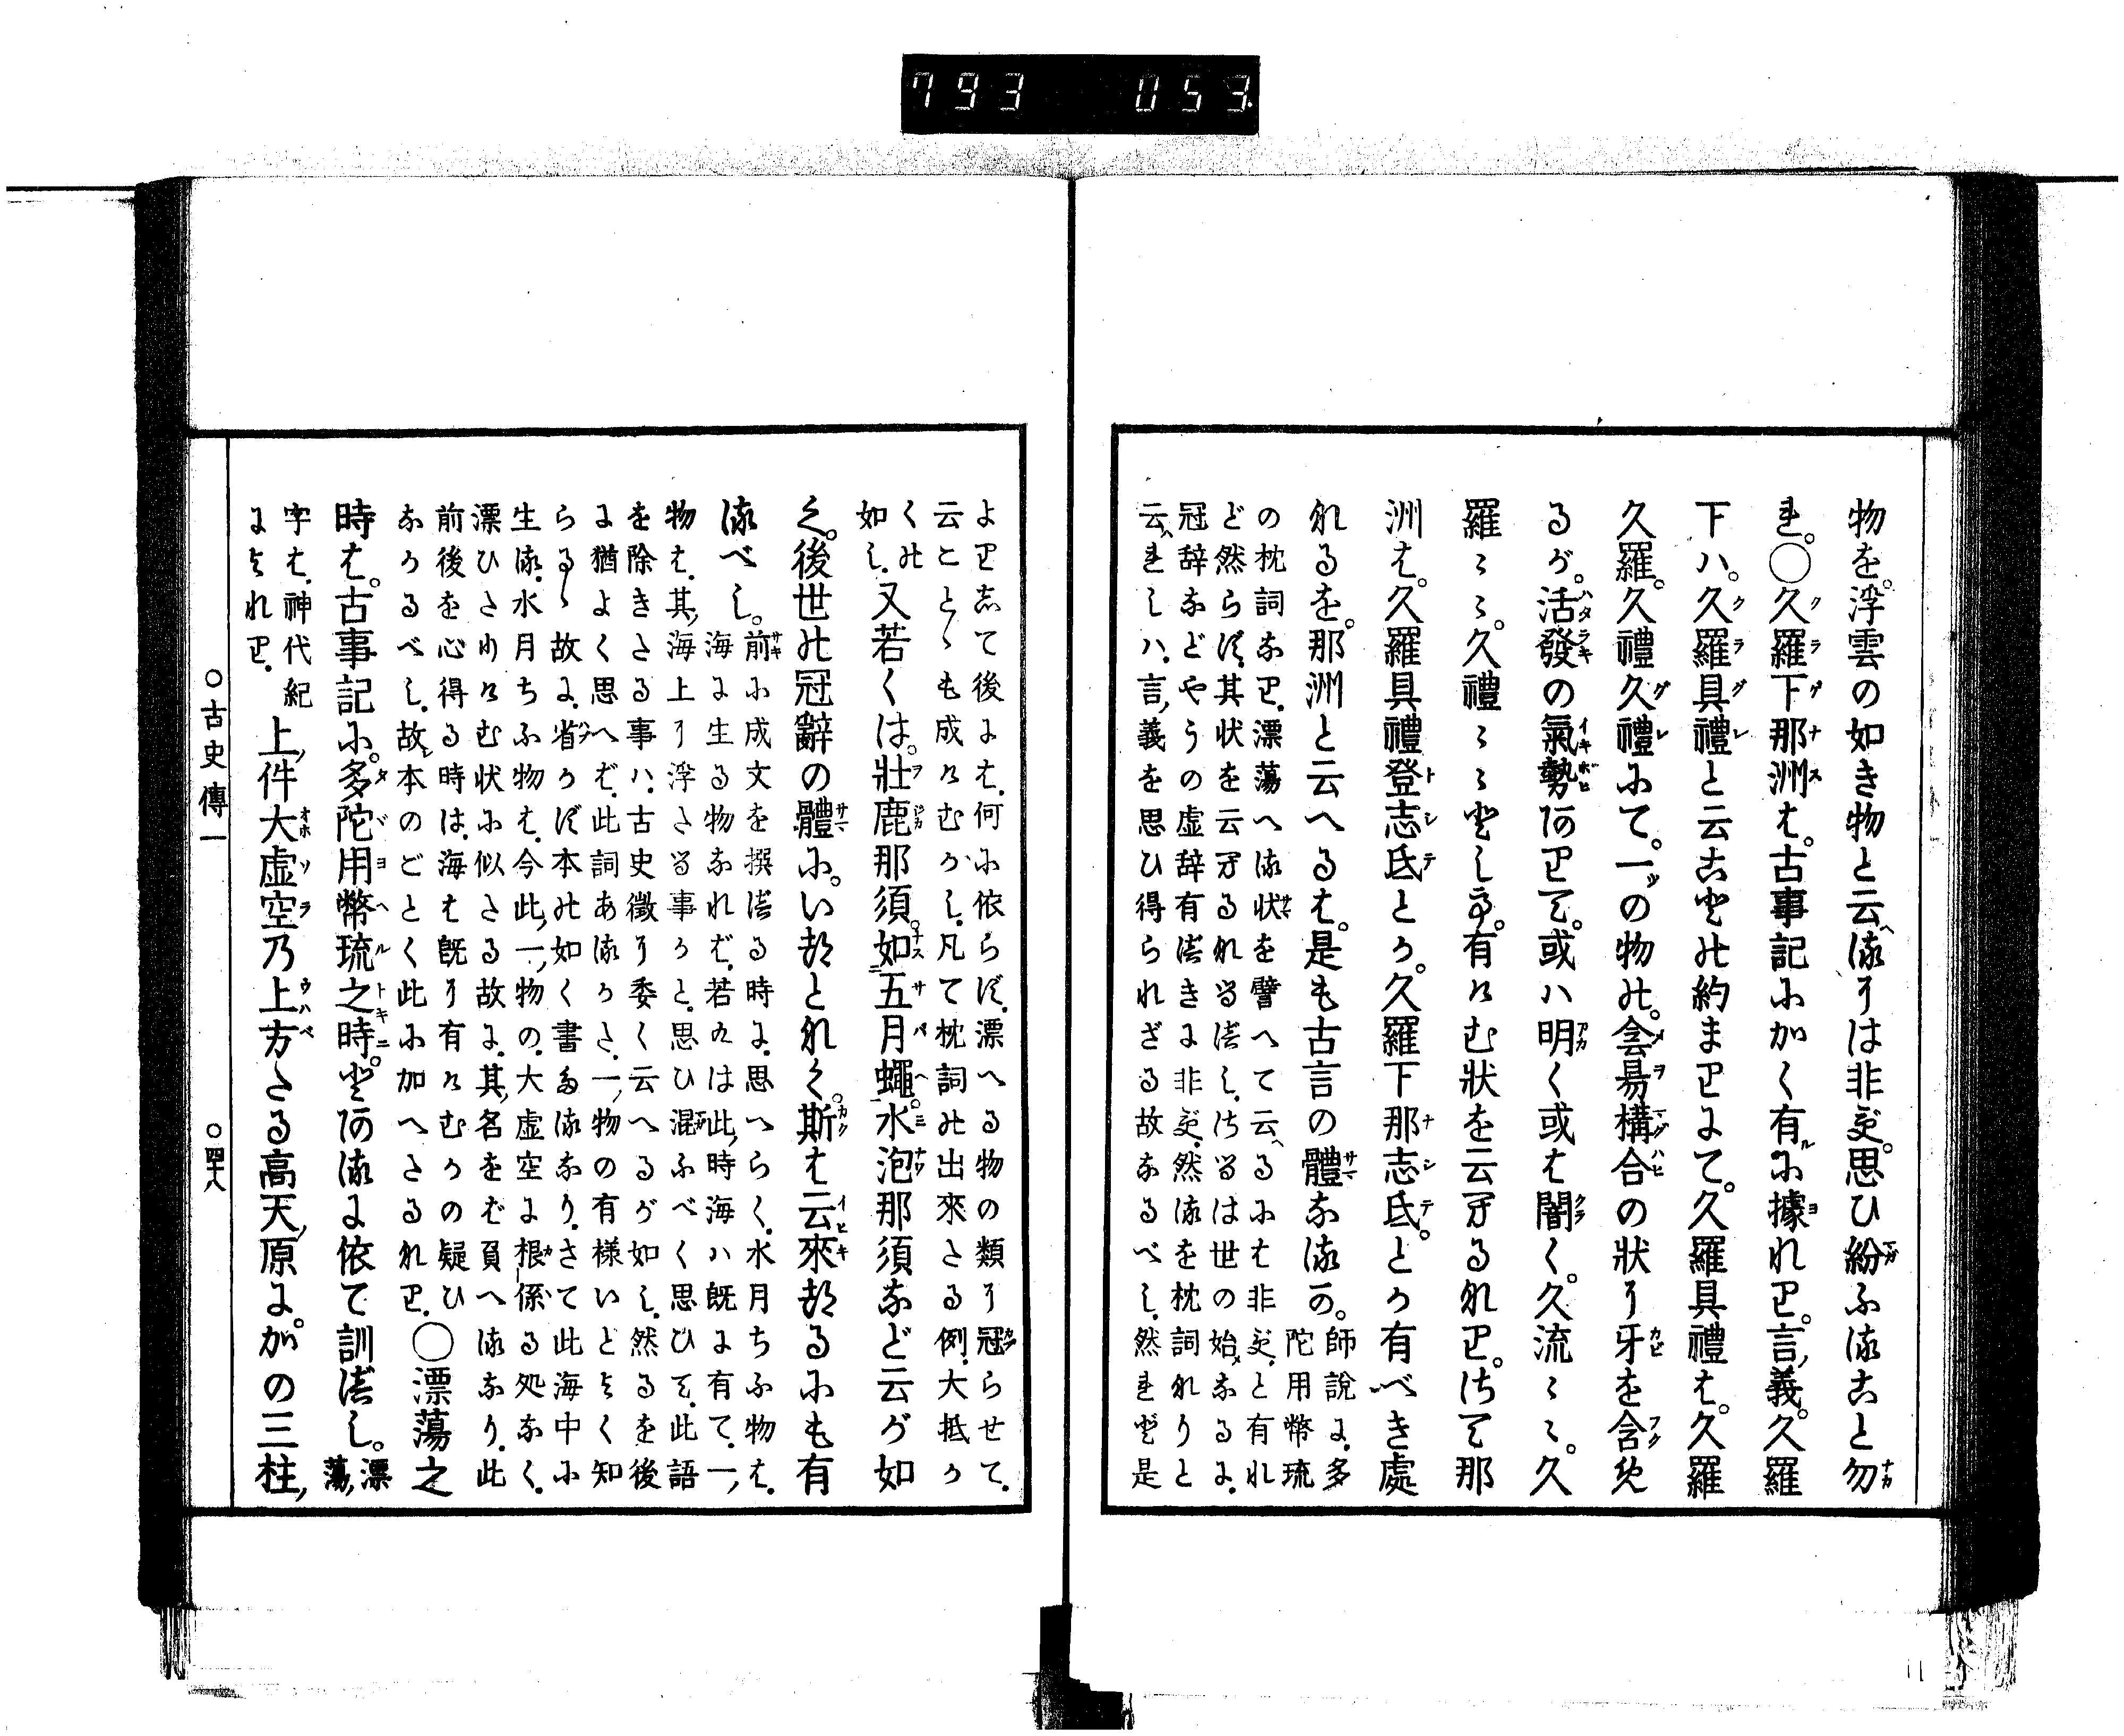 793 053
物を。浮雲の如き物と云るには非ず。思ひ紛ふることと勿
れ。○久羅下那洲は。古事記にかく有に據れり。言義。久羅
下ハ。久羅具禮と云ことの約まりにて。久羅具禮は。久羅
久羅。久禮久禮にて。一の物の。会易構合の状に牙を含免
るが。活發の氣勢ありて。或ハ明く或は闇く。久流〻〻。久
羅〻〻。久禮〻〻としも。有けむ狀を云するなり。さて那
洲は。久羅具禮登志氐とか。久羅下那志氐。とか有べき處
なるを。那洲と云へるは。是も古言の體なるか。
師說に、多陀用幣琉
の枕詞なり。漂蕩へる状を譬へて云るには非ず。と有れ
ど然らず。其状を云するなるべし。さるは世の始なるに。
冠辞などやうの虚辞有べきに非ず。然るを枕詞なりと
云れしハ。言義を思ひ得られざる故なるべし。然れど是
よりして後には。何に依らず。漂へる物の類に冠らせて。
云ことゝも成けむかし。凡て枕詞の出來たる例。大抵か
くの如し。
又若くは。壯鹿那須。如五月蠅。水泡那須など云が如
く。後世の冠辭の體に。いとなく。斯は云來とるにも有
るべし。
前に成文を撰べる時に。思へらく。水月ちふ物は。
海に生る物なれば。若くは此時海ハ既に有て。一
物は。其海上に浮たる事かと。思ひ混ふべく思ひて。此語
を除きたる事ハ。古史徵に委く云へるが如し。然るを後
に猶よく思へば。此詞あるかた。一物の有様いとよく知
らるゝ故に。省かず本の如く書るなり。さて此海中に
生る。水月ちふ物は。今此一物の。大虚空に根係る処なく。
漂ひたりけむ状に似たる故に。其名をば負へるなり。此
前後を心得る時は。海は既に有けむかの疑ひ
なかるべし。故本のごとく此に加へたるなり。
○漂蕩之
時は。古事記に。多陀用幣琉之時。とあるに依て訓べし。
漂蕩
字は。神代紀
によれり。
上件大虚空乃上方たる高天原に。かの三柱
○古史傳一
○四十八